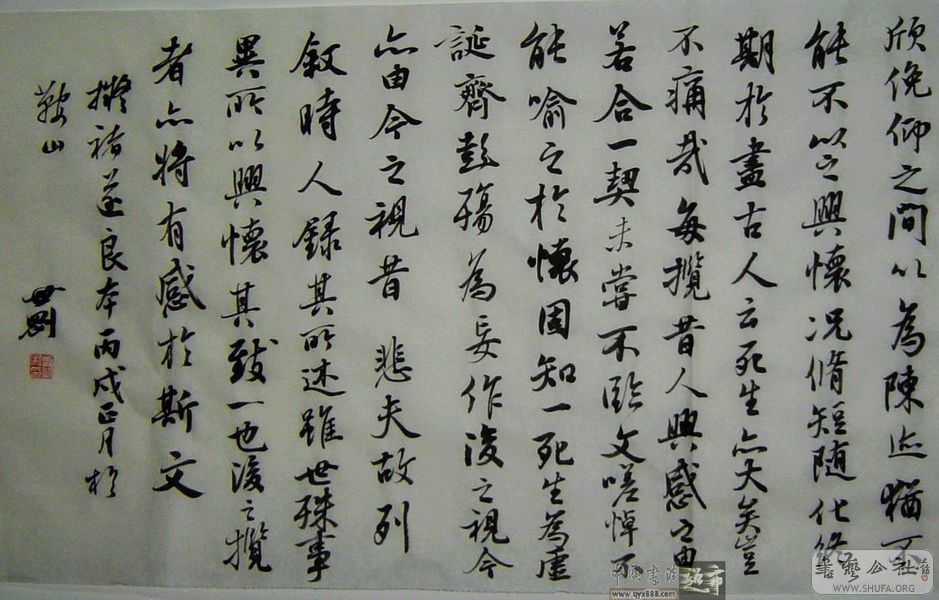 欣俛仰之間以為陳迹猶不
能不以之興懷況脩短隨化終
期於盡古人云死生亦大矣豈
不痛哉每攬昔人興感之由
若合一契未嘗不臨文嗟悼不
能喻之於懷固知一死生為虛
誕齊彭殤為妄作後之視今
亦由今之視昔悲夫故列
敘時人錄其所述雖世殊事
異所以興懷其致一也後之攬
者亦將有感於斯文
擬褚遂良本丙戌正月於
鞍山
中國書法超市
www.qyx888.com
書藝公社
WWW.SHUFA.ORG